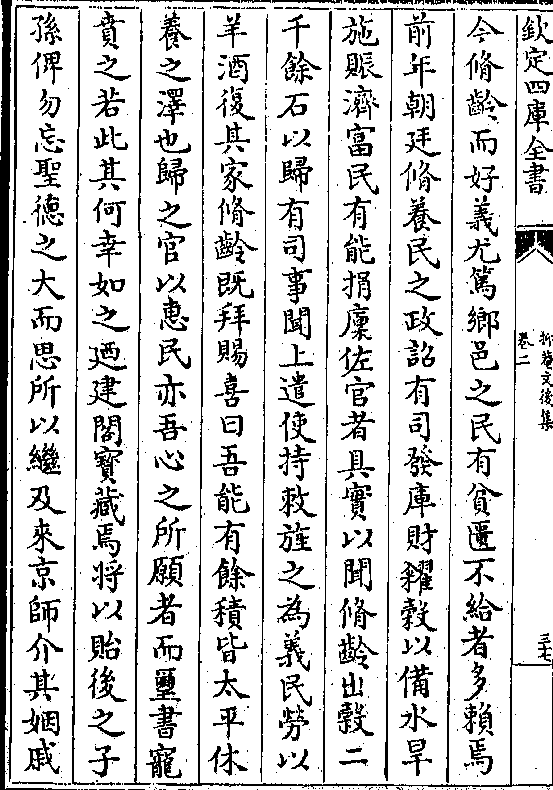 欽定四庫全書
卷二
三七
今脩齡而好義尤篤鄉邑之民有貧匱不給者多賴焉
前年朝廷脩養民之政詔有司發庫財糴穀以備水旱
施賑濟富民有能捐廩佐官者具實以聞脩齡出穀二
千餘石以歸有司事聞上遣使持敕旌之為義民勞以
羊酒復其家脩齡既拜賜喜曰吾能有餘積皆太平休
養之澤也歸之官以惠民亦吾心之所願者而璽書寵
賁之若此其何幸如之廼建閣寳藏焉将以貽後之子
孫俾勿忘聖德之大而思所以繼及來京師介其姻戚